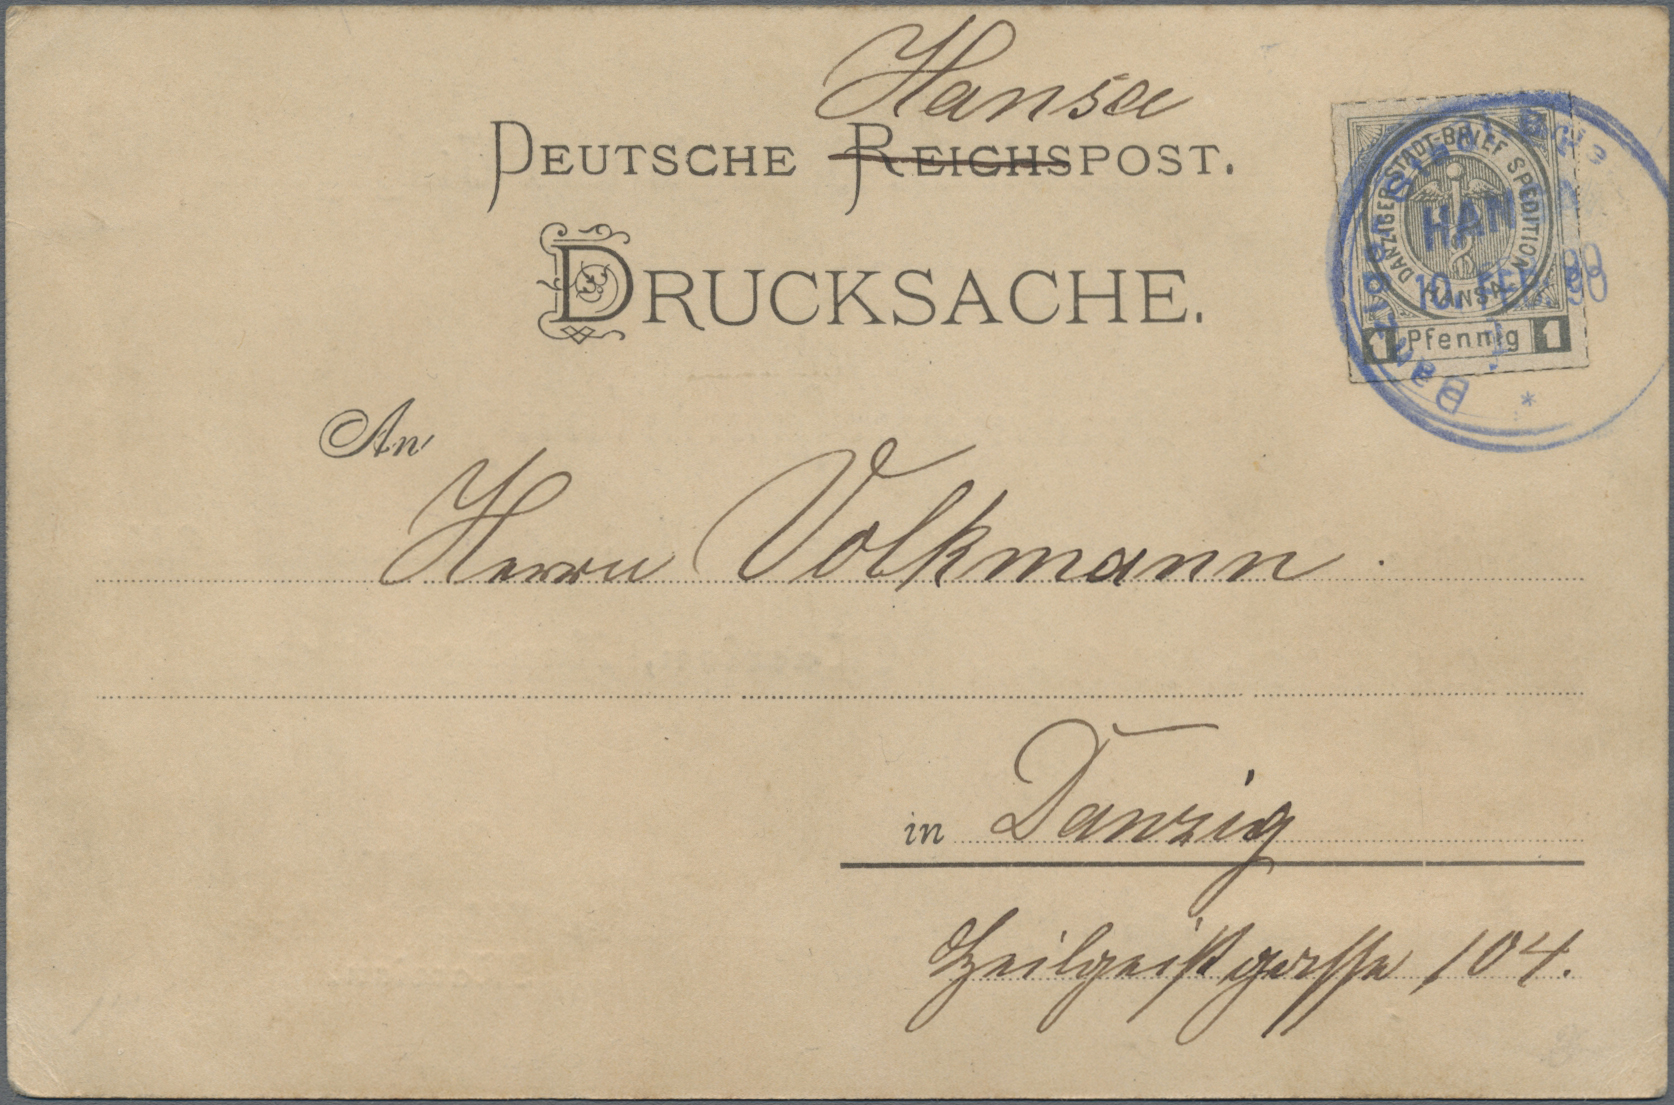 Hansa
DEUTSCHE REICHSPOST.
DRUCKSACHE.
DANZIGER STADT-BRIEF SPEDITION
HANSA
1 Pfennig 1
Danziger Stadt-
HAN
10. FEB. 90
An
Herrn Volkmann.
in Danzig
Heilgeistgasse 104.